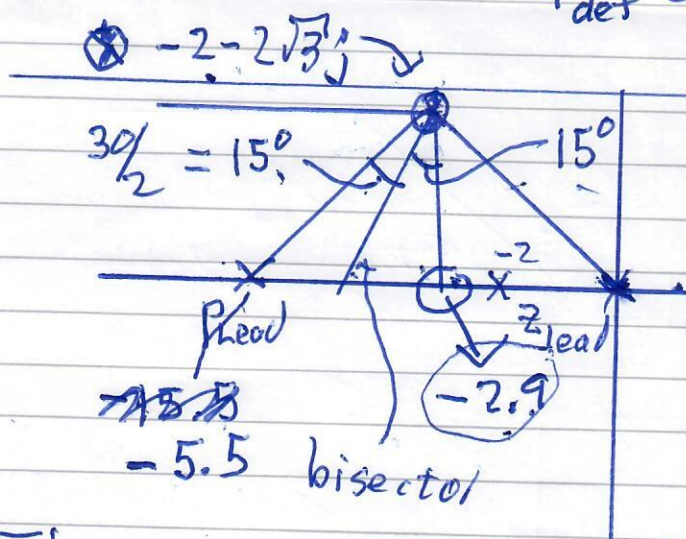 def
⊗ -2-2√3j
30/2 = 15°
15°
-2
PLead
Zlead
-2.9
-5.5
bisector